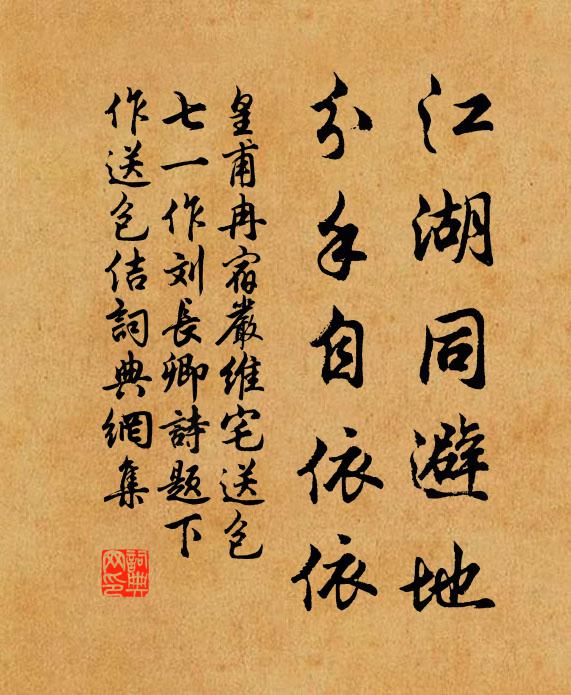 江湖同避地
分手自依依
皇甫冉宿嚴維宅送包
七一作刘長卿詩题下
作送包佶詞典網集
詞典网印